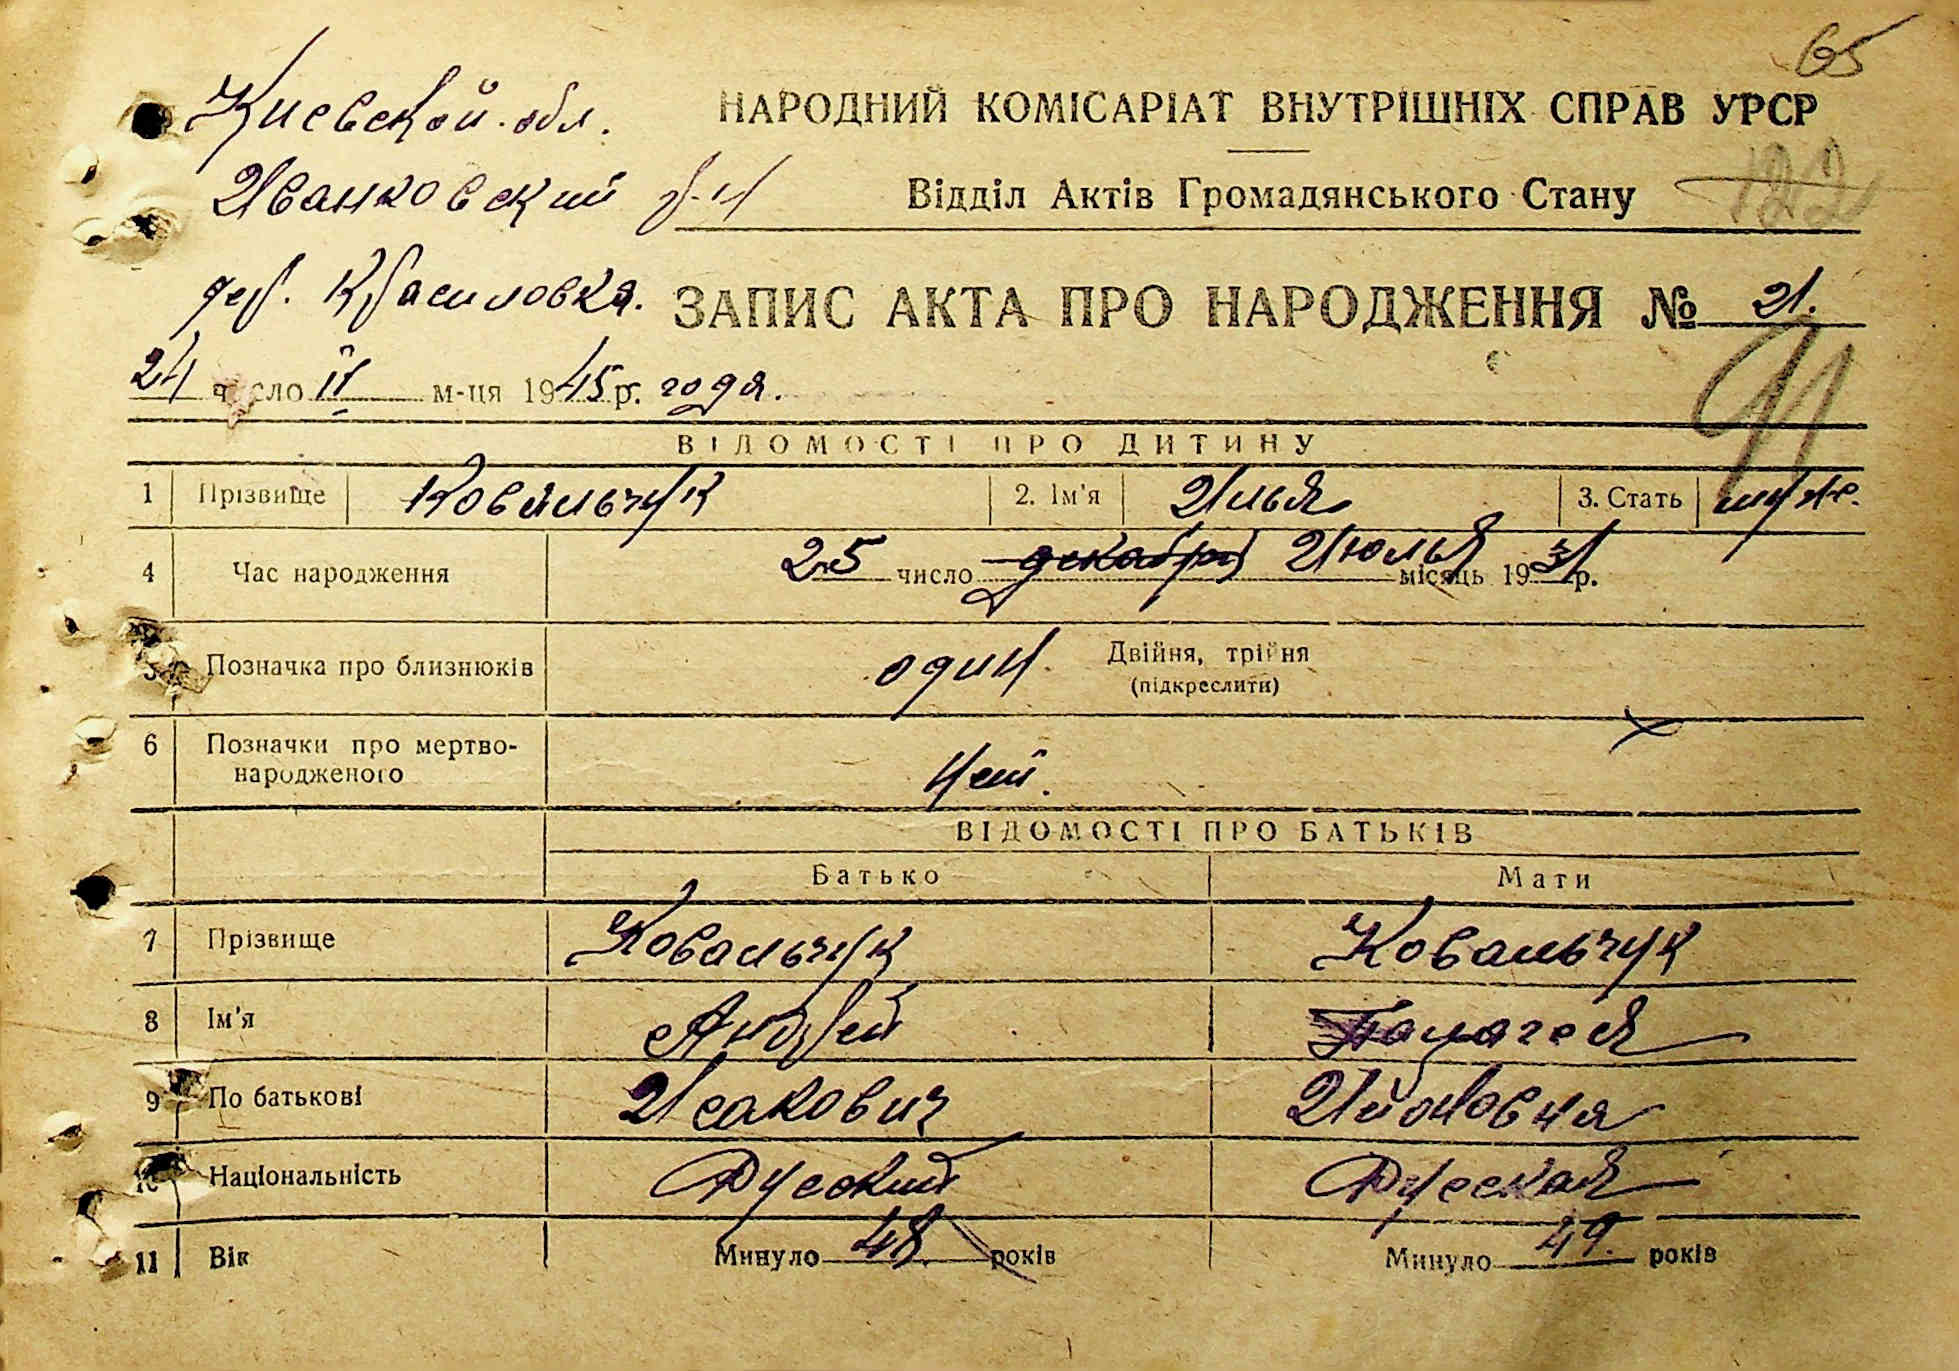 65
Киевской обл.
НАРОДНИЙ КОМІСАРІАТ ВНУТРІШНІХ СПРАВ УРСР
Иванковский р-н
Відділ Актів Громадянського Стану 122
дер. Красиловка.
ЗАПИС АКТА ПРО НАРОДЖЕННЯ № 21.
91
24 число II м-ця 1945 р. года.
ВІДОМОСТІ ПРО ДИТИНУ
1 Прізвище Ковальчук 2. Ім'я Илья 3. Стать муж.
4 Час народження 25 число декабря Июля місяць 1931 р.
5 Позначка про близнюків один. Двійня, трійня
(підкреслити)
6 Позначки про мертво-
народженого нет.
ВІДОМОСТІ ПРО БАТЬКІВ
Батько Мати
7 Прізвище Ковальчук Ковальчук
8 Ім'я Андрей
9 По батькові Исакович
10 Національність Русский Русская
11 Вік Минуло 48 років Минуло 49. років